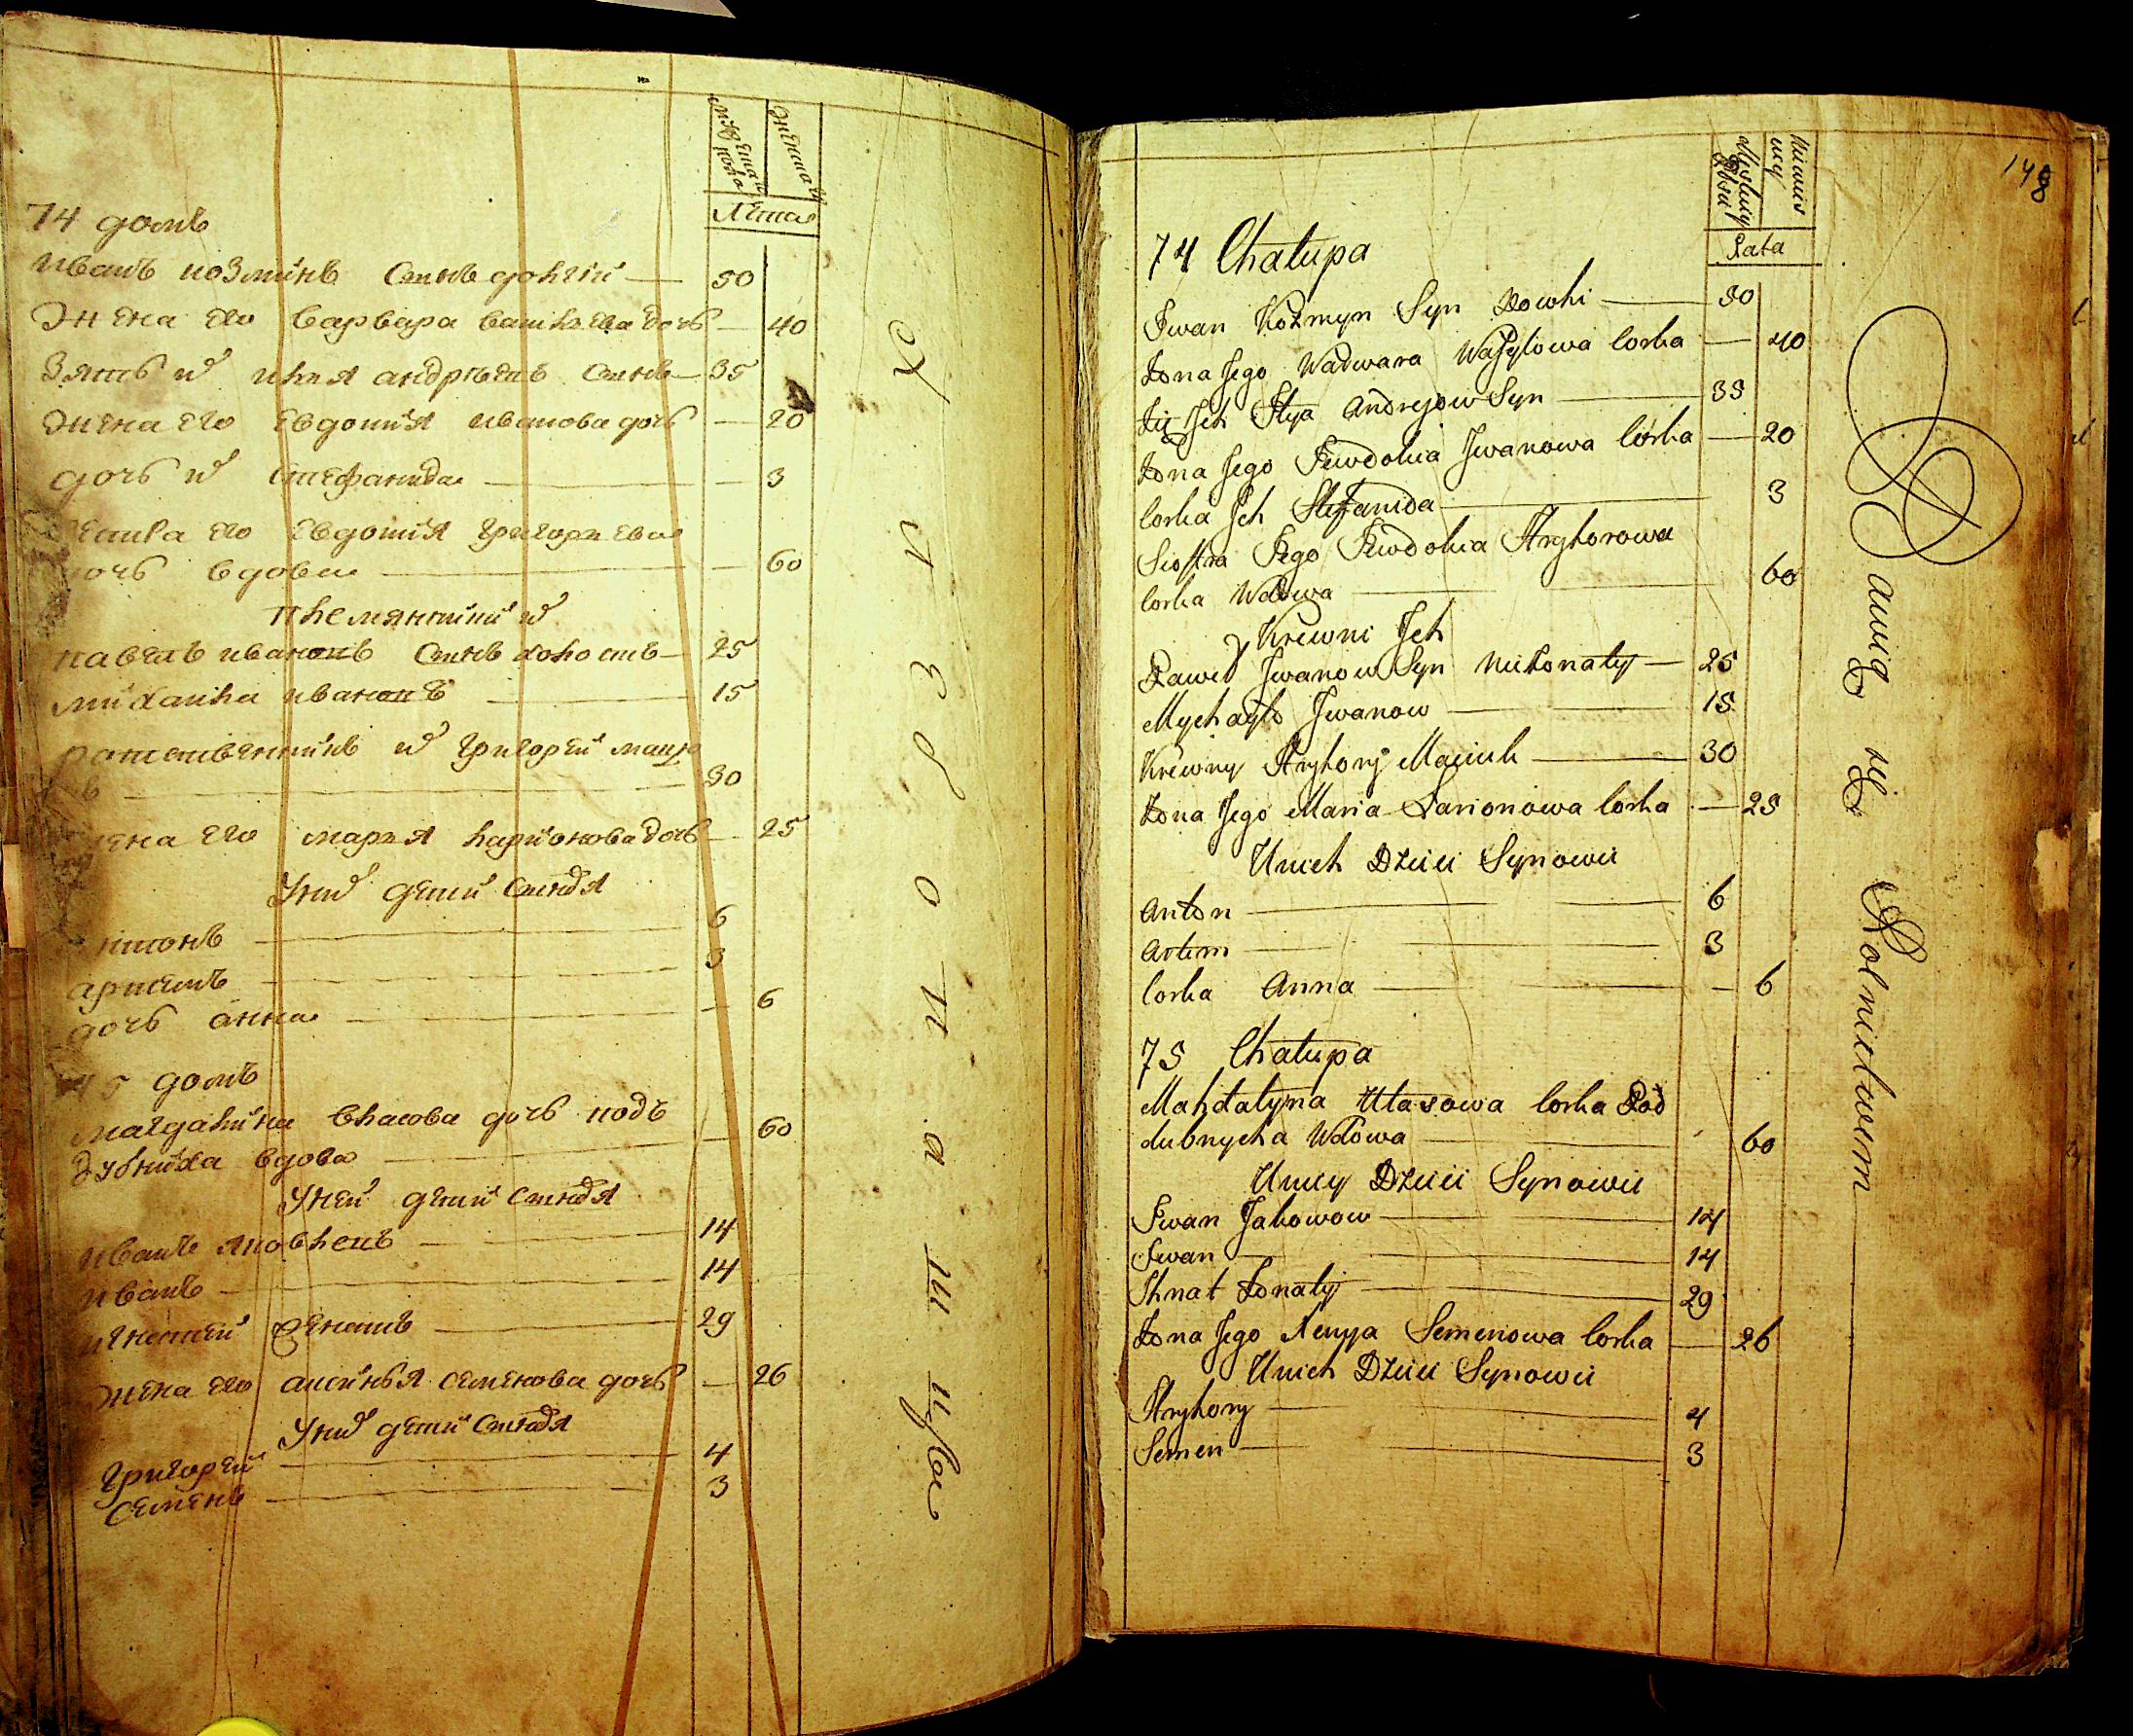 мужеска пола
женска
Лета
74 домъ
иванъ козминъ синъ долгии 50
жена его варвара васильева дочь 40
зять их илия андреевъ синъ 35
жена его евдокия иванова дочь 20
дочь их стефанида 3
сестра его евдокия григорьева
дочь вдова 60
племянники их
павелъ ивановъ синъ холостъ 25
михаила ивановъ 15
родственникъ их григорей мацю
къ 30
жена его марья ларионова дочь 25
у них дети синовя
антонъ 6
артемъ 3
дочь анна 6
75 домъ
магдалина власова дочь подъ
дубниха вдова 60
у неи дети синовя
иванъ яковлевъ 14
иванъ 14
игнатеи женатъ 29
жена его аксинья семенова дочь 26
у них дети синовя
григореи 4
семенъ 3
148
Męskiey Płci
Lata
74 Chałupa
Iwan Kozmyn Syn Dowhi 50
Żona Jego Warwara Wasylowa Corka 40
Zię Jch Ilya Andrejow Syn 35
Żona Jego Jewdokia Jwanowa Corka 20
Corka Jch Stefanida 3
Siostra Jego Jewdokia Hryhorowa
Corka Wdowa 60
Krewni Jch
Paweł Jwanow Syn nieżonaty 25
Mychayło Jwanow 15
Krewny Hryhory Maciuk 30
Żona Jego Maria Larionowa Corka 25
U nich Dzieci Synowie
Anton 6
Artem 3
Corka Anna 6
75 Chałupa
Mahdalyna Ułasowa Corka Pod
dubnycha Wdowa 60
U niey Dzieci Synowie
Iwan Jakowow 14
Iwan 14
Ihnat Żonaty 29
Żona Jego Xenya Semenowa Corka 26
U nich Dzieci Synowie
Hryhory 4
Semen 3
Bawią się Rolnictwem